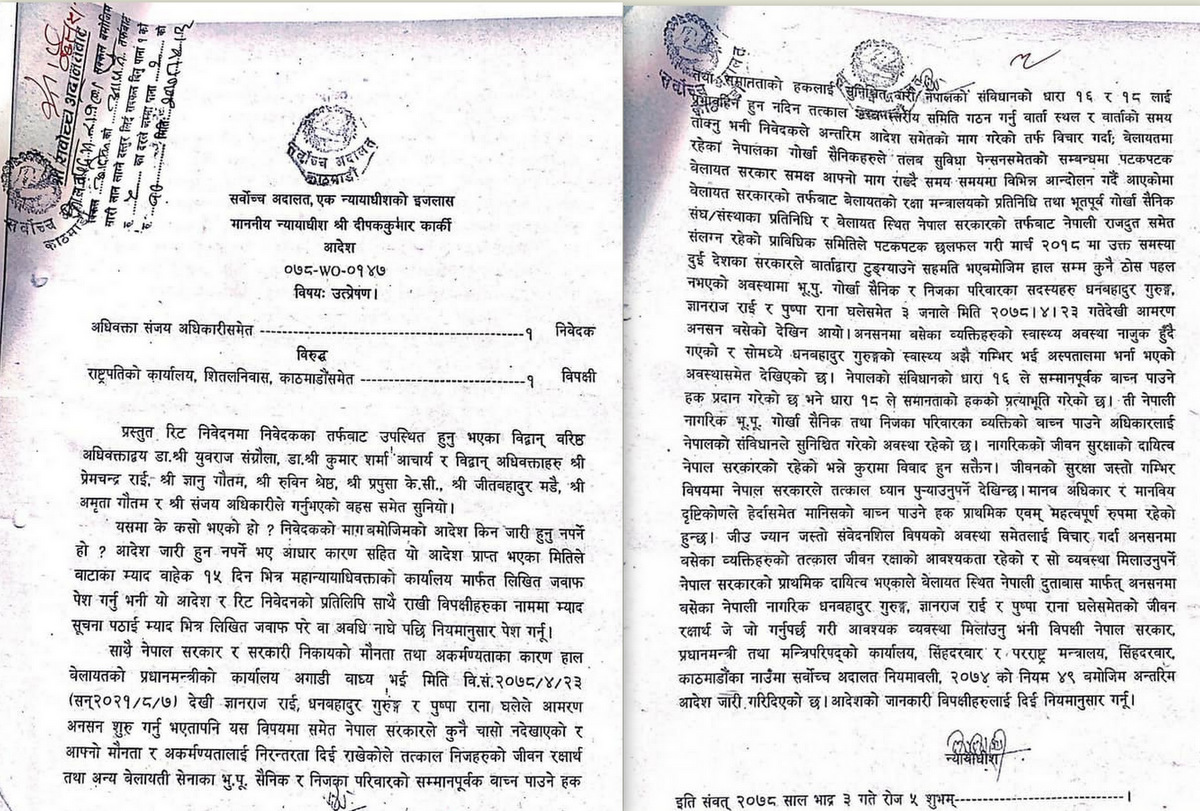 श्री सर्वोच्च अदालतबाट
सर्वोच्च अदालत
काठमाडौं
सर्वोच्च अदालत, एक न्यायाधीशको इजलास
माननीय न्यायाधीश श्री दीपककुमार कार्की
आदेश
०७८-WO-०१४७
विषयः उत्प्रेषण।
अधिवक्ता संजय अधिकारीसमेत ------------------------------------------१ निवेदक
विरुद्ध
राष्ट्रपतिको कार्यालय, शितलनिवास, काठमाडौंसमेत --------------------------१ विपक्षी
प्रस्तुत रिट निवेदनमा निवेदकका तर्फबाट उपस्थित हुनु भएका विद्वान् वरिष्ठ
अधिवक्ताद्वय डा.श्री युवराज संग्रौला, डा.श्री कुमार शर्मा आचार्य र विद्वान् अधिवक्ताहरु श्री
प्रेमचन्द्र राई, श्री ज्ञानु गौतम, श्री रुविन श्रेष्ठ, श्री प्रपुसा के.सी., श्री जीतबहादुर मडै, श्री
अमृता गौतम र श्री संजय अधिकारीले गर्नुभएको बहस समेत सुनियो।
यसमा के कसो भएको हो ? निवेदकको माग बमोजिमको आदेश किन जारी हुनु नपर्ने
हो ? आदेश जारी हुन नपर्ने भए आधार कारण सहित यो आदेश प्राप्त भएका मितिले
वाटाका म्याद वाहेक १५ दिन भित्र महान्यायाधिवक्ताको कार्यालय मार्फत लिखित जवाफ
पेश गर्नु भनी यो आदेश र रिट निवेदनको प्रतिलिपि साथै राखी विपक्षीहरुका नाममा म्याद
सूचना पठाई म्याद भित्र लिखित जवाफ परे वा अवधि नाघे पछि नियमानुसार पेश गर्नू।
साथै नेपाल सरकार र सरकारी निकायको मौनता तथा अकर्मण्यताका कारण हाल
बेलायतको प्रधानमन्त्रीको कार्यालय अगाडी वाध्य भई मिति वि.सं.२०७८/४/२३
(सन्२०२१/८/७) देखी ज्ञानराज राई, धनबहादुर गुरुङ्ग र पुष्पा राना घलेले आमरण
अनसन शुरु गर्नु भएतापनि यस विषयमा समेत नेपाल सरकारले कुनै चासो नदेखाएको र
आफ्नो मौनता र अकर्मण्यतालाई निरन्तरता दिई राखेकोले तत्काल निजहरुको जीवन रक्षार्थ
तथा अन्य बेलायती सेनाका भु.पू. सैनिक र निजका परिवारको सम्मानपूर्वक वाच्न पाउने हक
तथा समानताको हकलाई सुनिश्चित गरी नेपालको संविधानको धारा १६ र १८ लाई
प्रभावहिन हुन नदिन तत्काल उच्चस्तरीय समिति गठन गर्नु वार्ता स्थल र वार्ताको समय
तोक्नु भनी निवेदकले अन्तरिम आदेश समेतको माग गरेको तर्फ विचार गर्दा; बेलायतमा
रहेका नेपालका गोर्खा सैनिकहरुले तलब सुविधा पेन्सनसमेतको सम्बन्धमा पटकपटक
बेलायत सरकार समक्ष आफ्नो माग राख्दै समय समयमा विभिन्न आन्दोलन गर्दै आएकोमा
बेलायत सरकारको तर्फबाट बेलायतको रक्षा मन्त्रालयको प्रतिनिधि तथा भूतपूर्व गोर्खा सैनिक
संघ/संस्थाका प्रतिनिधि र बेलायत स्थित नेपाल सरकारको तर्फबाट नेपाली राजदुत समेत
संलग्न रहेको प्राविधिक समितिले पटकपटक छलफल गरी मार्च २०१८ मा उक्त समस्या
दुई देशका सरकारले वार्ताद्वारा टुङ्ग्याउने सहमति भएबमोजिम हाल सम्म कुनै ठोस पहल
नभएको अवस्थामा भू.पु. गोर्खा सैनिक र निजका परिवारका सदस्यहरु धनबहादुर गुरुङ्ग,
ज्ञानराज राई र पुष्पा राना घलेसमेत ३ जनाले मिति २०७८।४।२३ गतेदेखी आमरण
अनसन बसेको देखिन आयो। अनसनमा बसेका व्यक्तिहरुको स्वास्थ्य अवस्था नाजुक हुँदै
गएको र सोमध्ये धनबहादुर गुरुङ्गको स्वास्थ्य अझै गम्भिर भई अस्पतालमा भर्ना भएको
अवस्थासमेत देखिएको छ। नेपालको संविधानको धारा १६ ले सम्मानपूर्वक बाच्न पाउने
हक प्रदान गरेको छ भने धारा १८ ले समानताको हकको प्रत्याभूति गरेको छ। ती नेपाली
नागरिक भू.पू. गोर्खा सैनिक तथा निजका परिवारका व्यक्तिको बाच्न पाउने अधिकारलाई
नेपालको संविधानले सुनिश्चित गरेको अवस्था रहेको छ। नागरिकको जीवन सुरक्षाको दायित्व
नेपाल सरकारको रहेको भन्ने कुरामा विवाद हुन सक्तैन। जीवनको सुरक्षा जस्तो गम्भिर
विषयमा नेपाल सरकारले तत्काल ध्यान पुर्‍याउनुपर्ने देखिन्छ। मानव अधिकार र मानविय
दृष्टिकोणले हेर्दासमेत मानिसको बाच्न पाउने हक प्राथमिक एवम् महत्वपूर्ण रुपमा रहेको
हुन्छ। जीउ ज्यान जस्तो संवेदनशिल विषयको अवस्था समेतलाई विचार गर्दा अनसनमा
बसेका व्यक्तिहरुको तत्काल जीवन रक्षाको आवश्यकता रहेको र सो व्यवस्था मिलाउनुपर्ने
नेपाल सरकारको प्राथमिक दायित्व भएकाले बेलायत स्थित नेपाली दुतावास मार्फत् अनसनमा
बसेका नेपाली नागरिक धनबहादुर गुरुङ्ग, ज्ञानराज राई र पुष्पा राना घलेसमेतको जीवन
रक्षार्थ जे जो गर्नुपर्छ गरी आवश्यक व्यवस्था मिलाउनु भनी विपक्षी नेपाल सरकार,
प्रधानमन्त्री तथा मन्त्रिपरिषद्को कार्यालय, सिंहदरवार र परराष्ट्र मन्त्रालय, सिंहदरवार,
काठमाडौंका नाउँमा सर्वोच्च अदालत नियमावली, २०७४ को नियम ४९ बमोजिम अन्तरिम
आदेश जारी गरिदिएको छ। आदेशको जानकारी विपक्षीहरुलाई दिई नियमानुसार गर्नू।
न्यायाधीश
इति संवत् २०७८ साल भाद्र ३ गते रोज ५ शुभम्--------------------------।